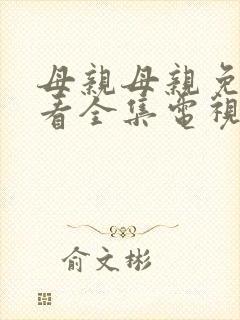 母親母親免
看全集電視
俞文彬